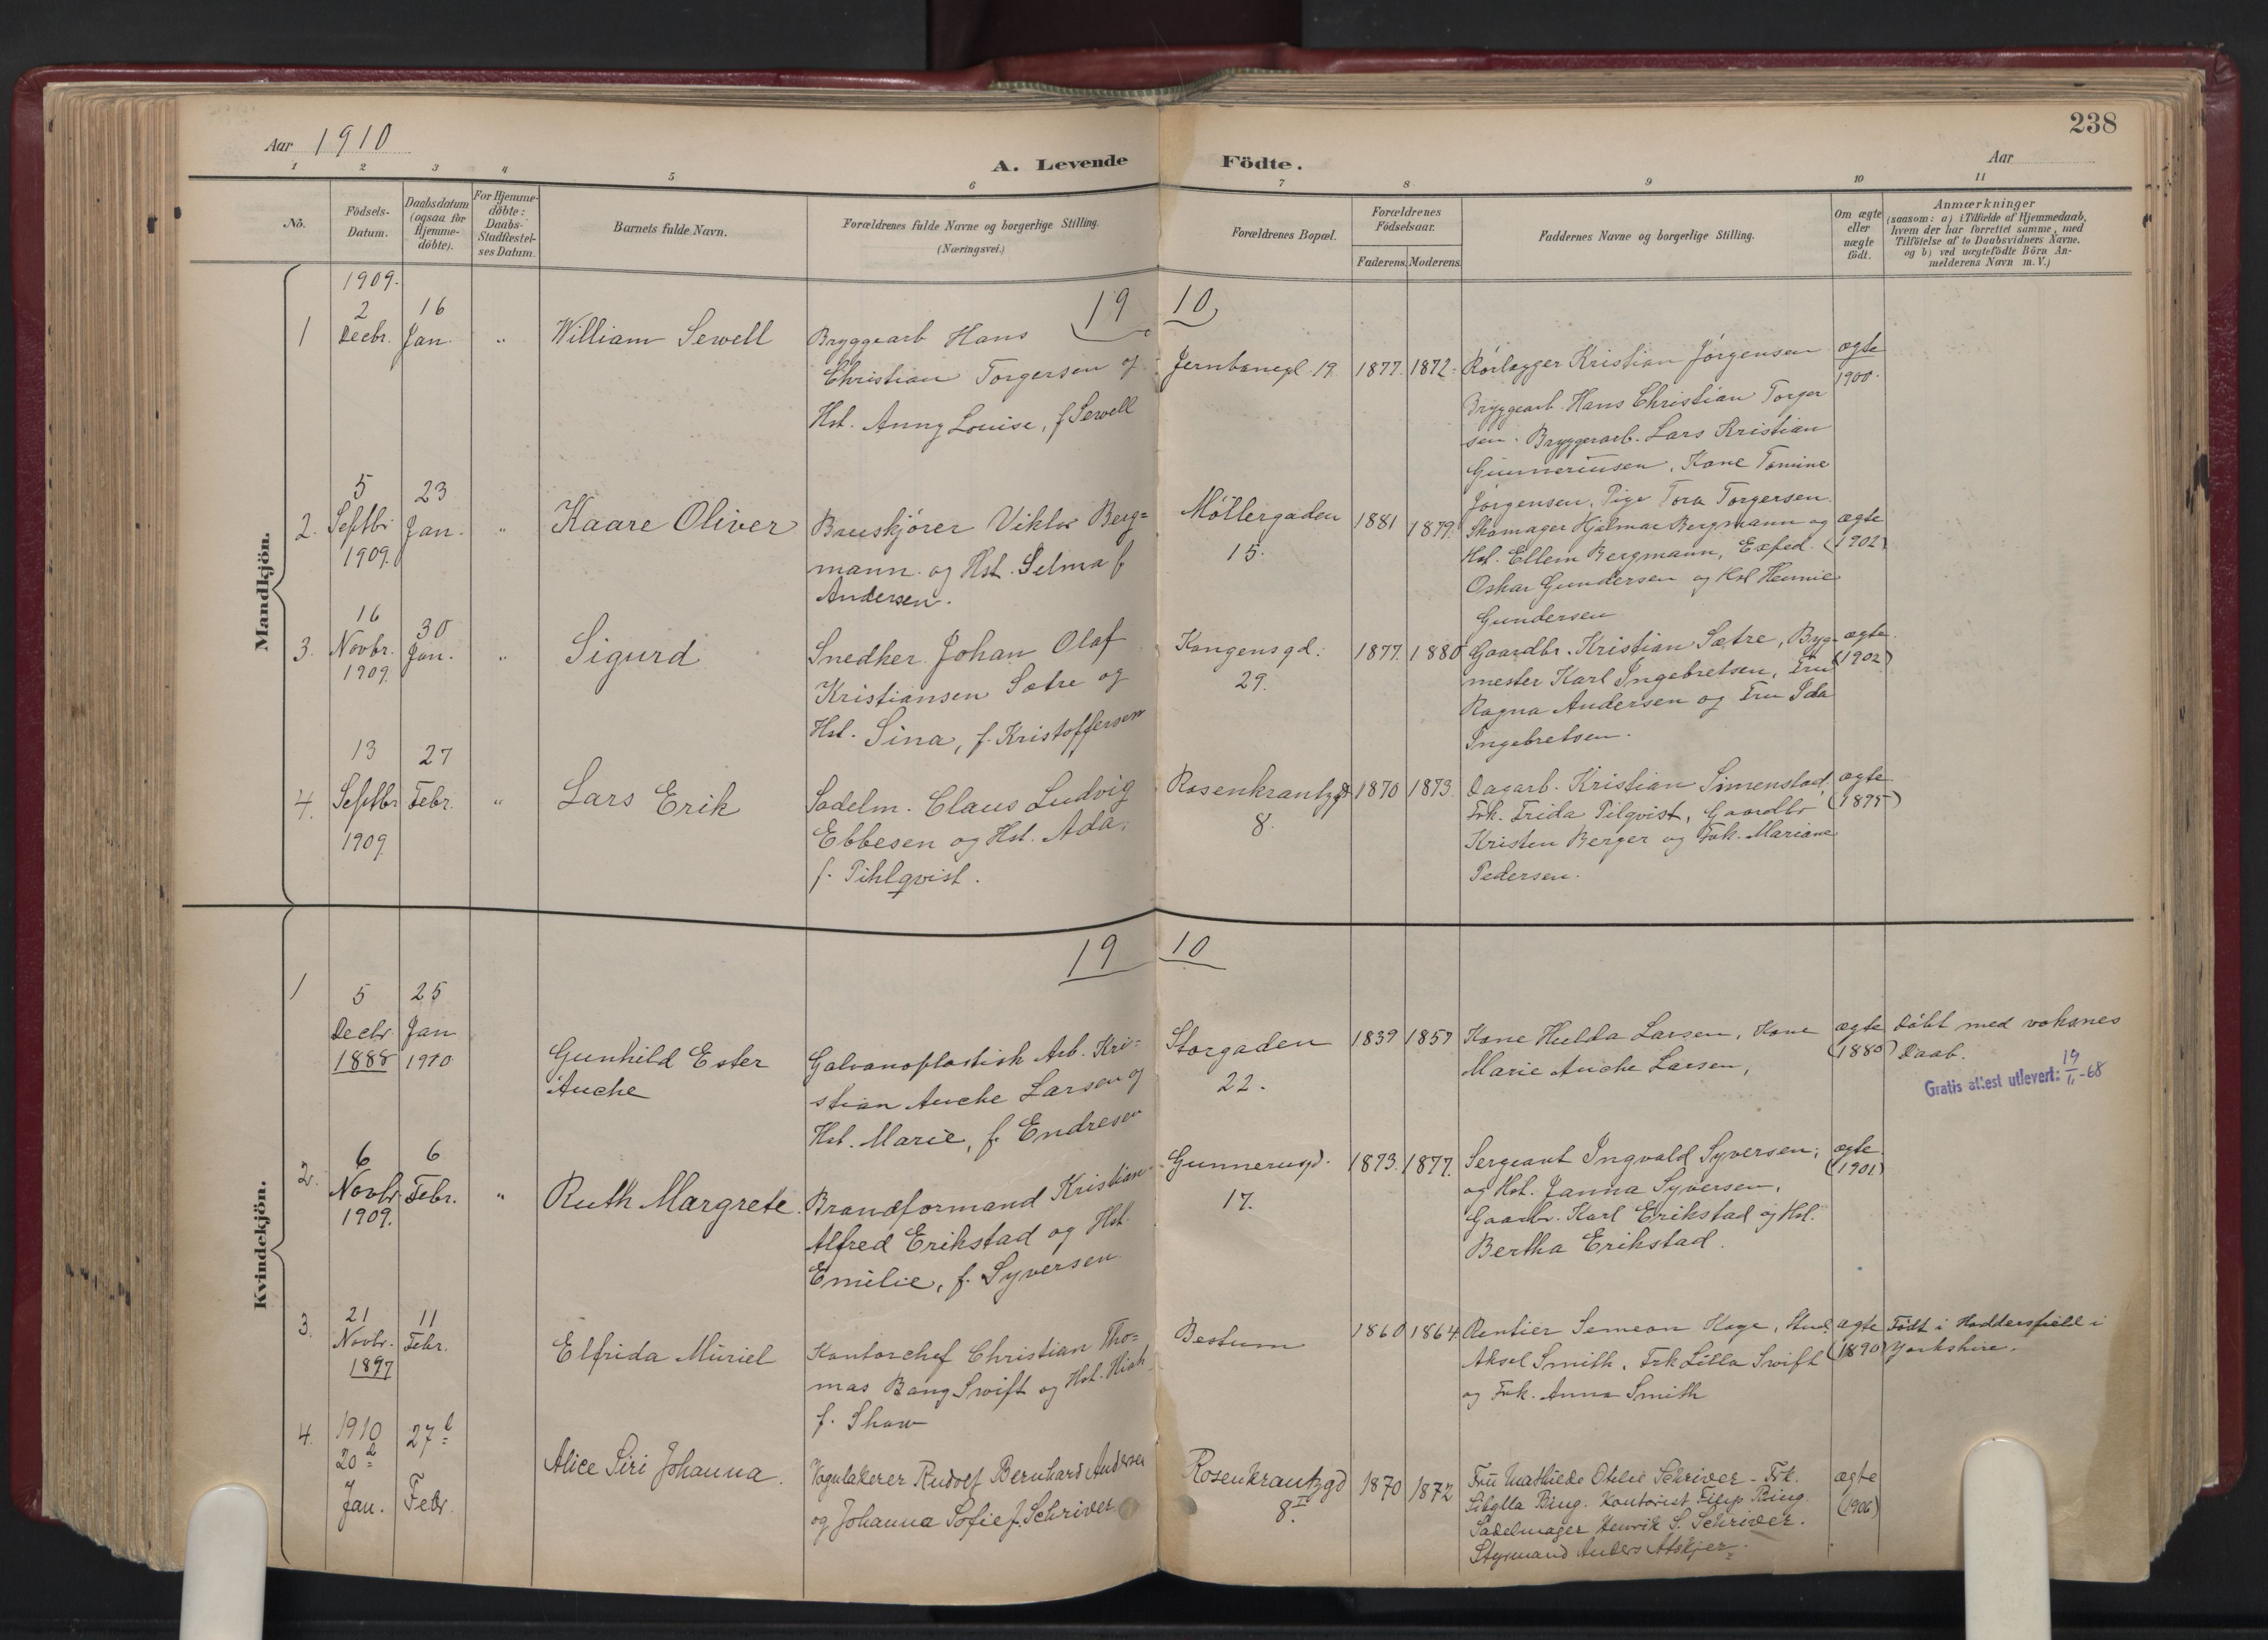 238
Aar 1910
A. Levende Födte.
Aar
1 2 3 4 5 6 7 8 9 10 11
No.
Födsels-
Datum.
Daabsdatum
(ogsaa for
Hjemme-
döbte).
For Hjemme-
döbte:
Daabs-
Stadfæstel-
ses Datum.
Barnets fulde Navn.
Forældrenes fulde Navne og borgerlige Stilling.
(Næringsvei.)
Forældrenes Bopæl.
Forældrenes
Födselsaar.
Faderens. Moderens.
Faddernes Navne og borgerlige Stilling.
Om ægte
eller
uægte
födt.
Anmærkninger
(saasom: a) i Tilfælde af Hjemmedaab,
hvem der har forrettet samme, med
Tilföielse af to Daabsvidners Navne.
og b) ved uægtefödte Börn An-
melderens Navn m. V.)
Mandkjön.
1910
1
1909.
2
Decbr.
16
Jan.
"
William Sewell
Bryggearb Hans
Christian Torgersen og
Hst. Anny Louise, f Sewell
Jernbanegd. 19.
1877. 1872.
Rörlægger Kristian Jörgensen
Bryggearb. Hans Christian Torger
sen. Bryggerarb. Lars Kristian
Gunneriusen, Kone Tomine
Jörgensen, Pige Tora Torgersen.
ægte
1900.
2.
5
Septbr
1909.
23
Jan.
"
Kaare Oliver
Bruskjörer Viktor Berg=
mann og Hst. Selma f
Andersen.
Möllergaden
15.
1881 1879.
Skomager Hjalmar Bergmann og
Hst. Ellem Bergmann, Exped.
Oskar Gundersen og Hst Hennie
Gundersen
ægte
(1902)
3.
16
Novbr.
1909.
30
Jan.
"
Sigurd
Snedker Johan Olaf
Kristiansen Sætre og
Hst. Sina, f. Kristoffersen
Kongensgd.
29.
1877. 1880
Gaardbr. Kristian Sætre, Byg
mester Karl Ingebretsen, Fru
Ragna Andersen og Fru Ida
Ingebretsen.
ægte.
(1902)
4.
13
Septbr
1909
27
Febr.
"
Lars Erik
Sadelm. Claus Ludvig
Ebbesen og Hst. Ada,
f. Pihlqvist.
Rosenkrantzgd
8.
1870 1873.
Dagarb. Kristian Simenstad,
Frk. Frida Pilqvist, Gaardbr
Kristen Berger og Frk. Mariane
Pedersen.
ægte
(1895)
Kvindekjön.
1910
1
5
Decbr.
1888
25
Jan
1910
Gunhild Ester
Anche
Galvanoplastisk Arb. Kri=
stian Anche Larsen og
Hst. Marie, f. Endresen
Storgaden
22.
1839 1857
Kone Hulda Larsen, Kone
Marie Anche Larsen,
ægte
(1880)
Döbt med voksnes
Daab.
Gratis attest utlevert: 19/11-68
2.
6
Novbr.
1909.
6
Febr.
"
Ruth Margrete.
Brandformand Kristian
Alfred Erikstad og Hst.
Emilie, f. Syversen
Gunnerusgd.
17.
1873. 1877.
Sergeant Ingvald Syversen,
og Hst. Janna Syversen,
Gaardbr. Karl Erikstad og Hst.
Bertha Erikstad.
ægte.
(1901)
3.
21
Novbr.
1897
11
Febr.
Elfrida Muriel
Kontorchef Christian Tho=
mas Bang Swift og Hst.
f. Shaw
Bestum
1860 1864
Rentier Semeon Hoge, Stud.
Aksel Smith, Frk Lilla Swift
og Frk. Anna Smith
ægte
(1890)
Födt i Hoddersfield i
Yorkshire.
4.
1910
20d
Jan.
27d
Febr.
Alice Siri Johanna.
Vognlakerer Rudolf Bernhard Andersen
og Johanna Sofie f. Schriver
Rosenkrantzgd
8 II
1870 1872
Fru Mathilde Otilie Schriver - Frk.
Sibylla Bing. Kontorist Filip Bing.
Sadelmager Henrik S. Schriver.
Styrmand Anders Atskjer
ægte
(1906)